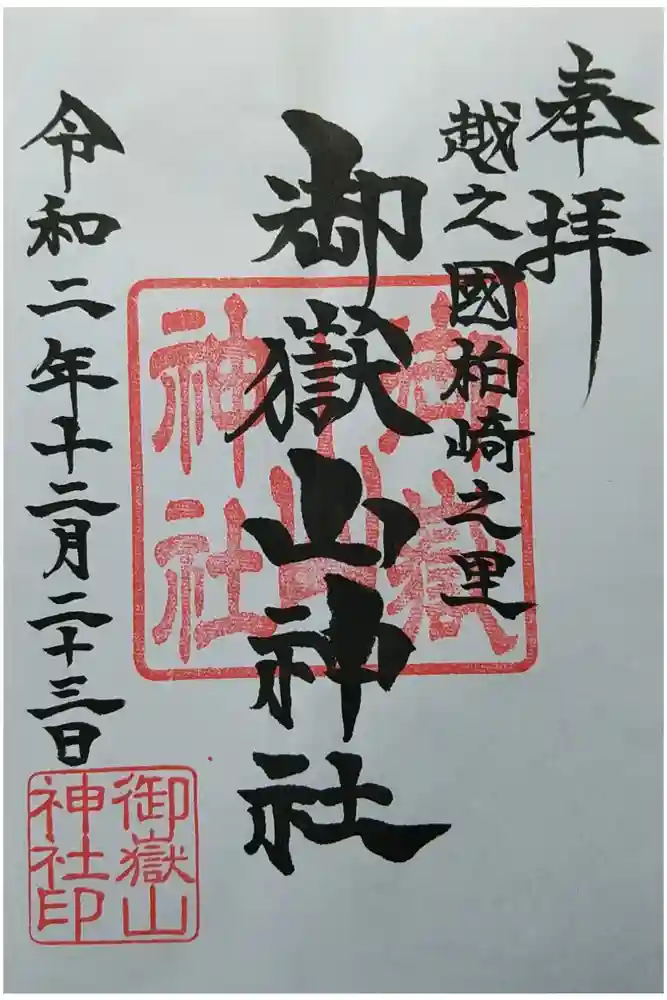 奉拝
越之國柏崎之里
御嶽山神社
御嶽
山
神社
令和二年十二月二十三日
御嶽山
神社印